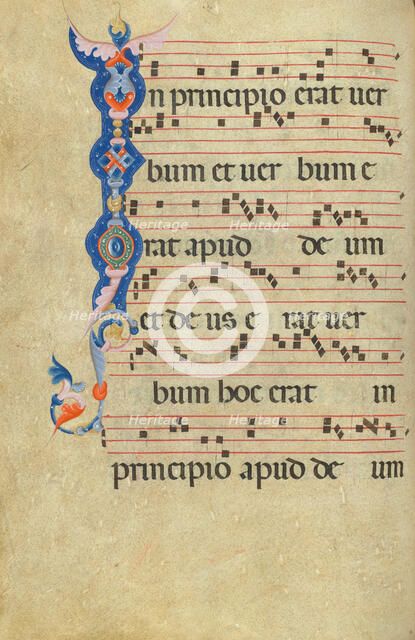 In principio erat ver
bum et uer bum e
rat apud de um
et de us e rat uer
bum hoc erat in
principio apud de um
Heritage
Heritage
Heritage
Heritage
Heritage
Heritage
Heritage
Heritage
Heritage